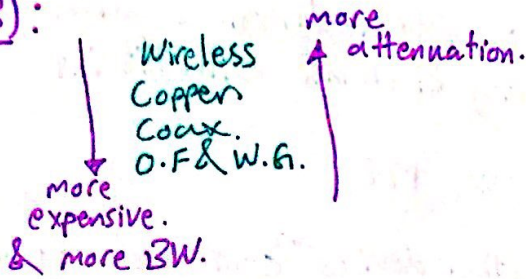 ):
more
attenuation.
Wireless
Copper
Coax.
O.F & W.G.
more
expensive.
& more BW.